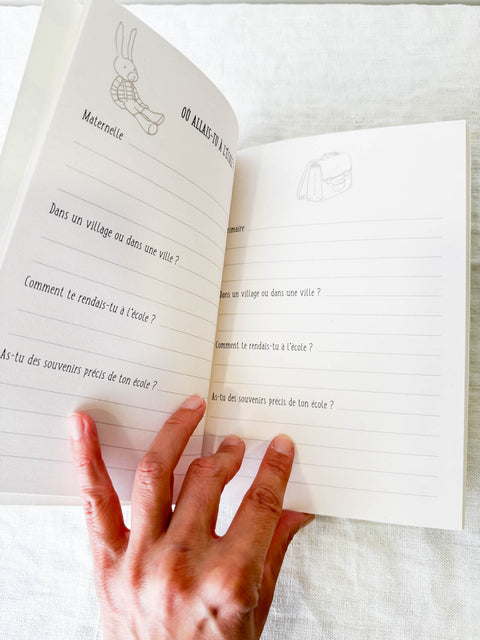 OÙ ALLAIS-TU À L'ÉCOLE
Maternelle
Dans un village ou dans une ville ?
Comment te rendais-tu à l'école ?
As-tu des souvenirs précis de ton école ?
Dans un village ou dans une ville ?
Comment te rendais-tu à l'école ?
As-tu des souvenirs précis de ton école ?